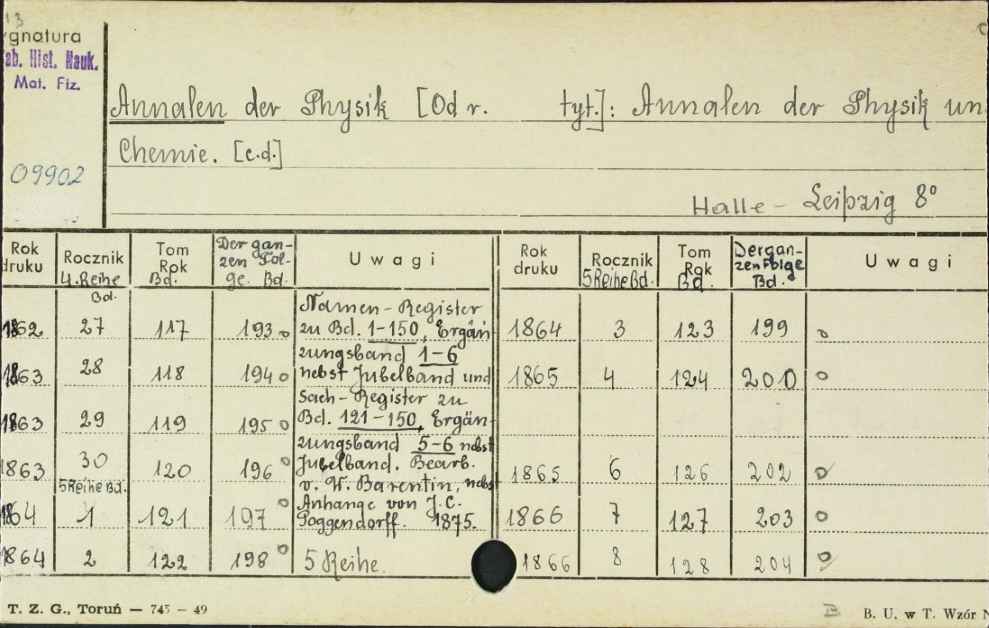 13
gnatura
ab. Hist. Nauk.
Mat. Fiz.
09902
Annalen der Physik [Od r. tyt.]: Annalen der Physik un
Chemie. [c.d.]
Halle – Leipzig 8°
Rok druku | Rocznik 4. Reihe Bd. | Tom Rok Bd. | Der ganzen Folge. Bd. | Uwagi | Rok druku | Rocznik 5 Reihe Bd. | Tom Rok Bd. | Der ganzen Folge Bd. | Uwagi
1862 27 117 193 o
1863 28 118 194 o
1863 29 119 195 o
1863 30 120 196 o
5 Reihe Bd.
1864 1 121 197 o
1864 2 122 198 o
Namen-Register
zu Bd. 1-150, Ergän-
zungsband 1-6
nebst Jubelband und
Sach-Register zu
Bd. 121-150, Ergän-
zungsband 5-6 nebst
Jubelband. Bearb.
v. W. Barentin, nebst
Anhange von J.C.
Poggendorff. 1875.
5 Reihe.
1864 3 123 199 o
1865 4 124 200 o
1865 6 126 202 o
1866 7 127 203 o
1866 8 128 204 o
T. Z. G., Toruń — 745 — 49
B. U. w T. Wzór N